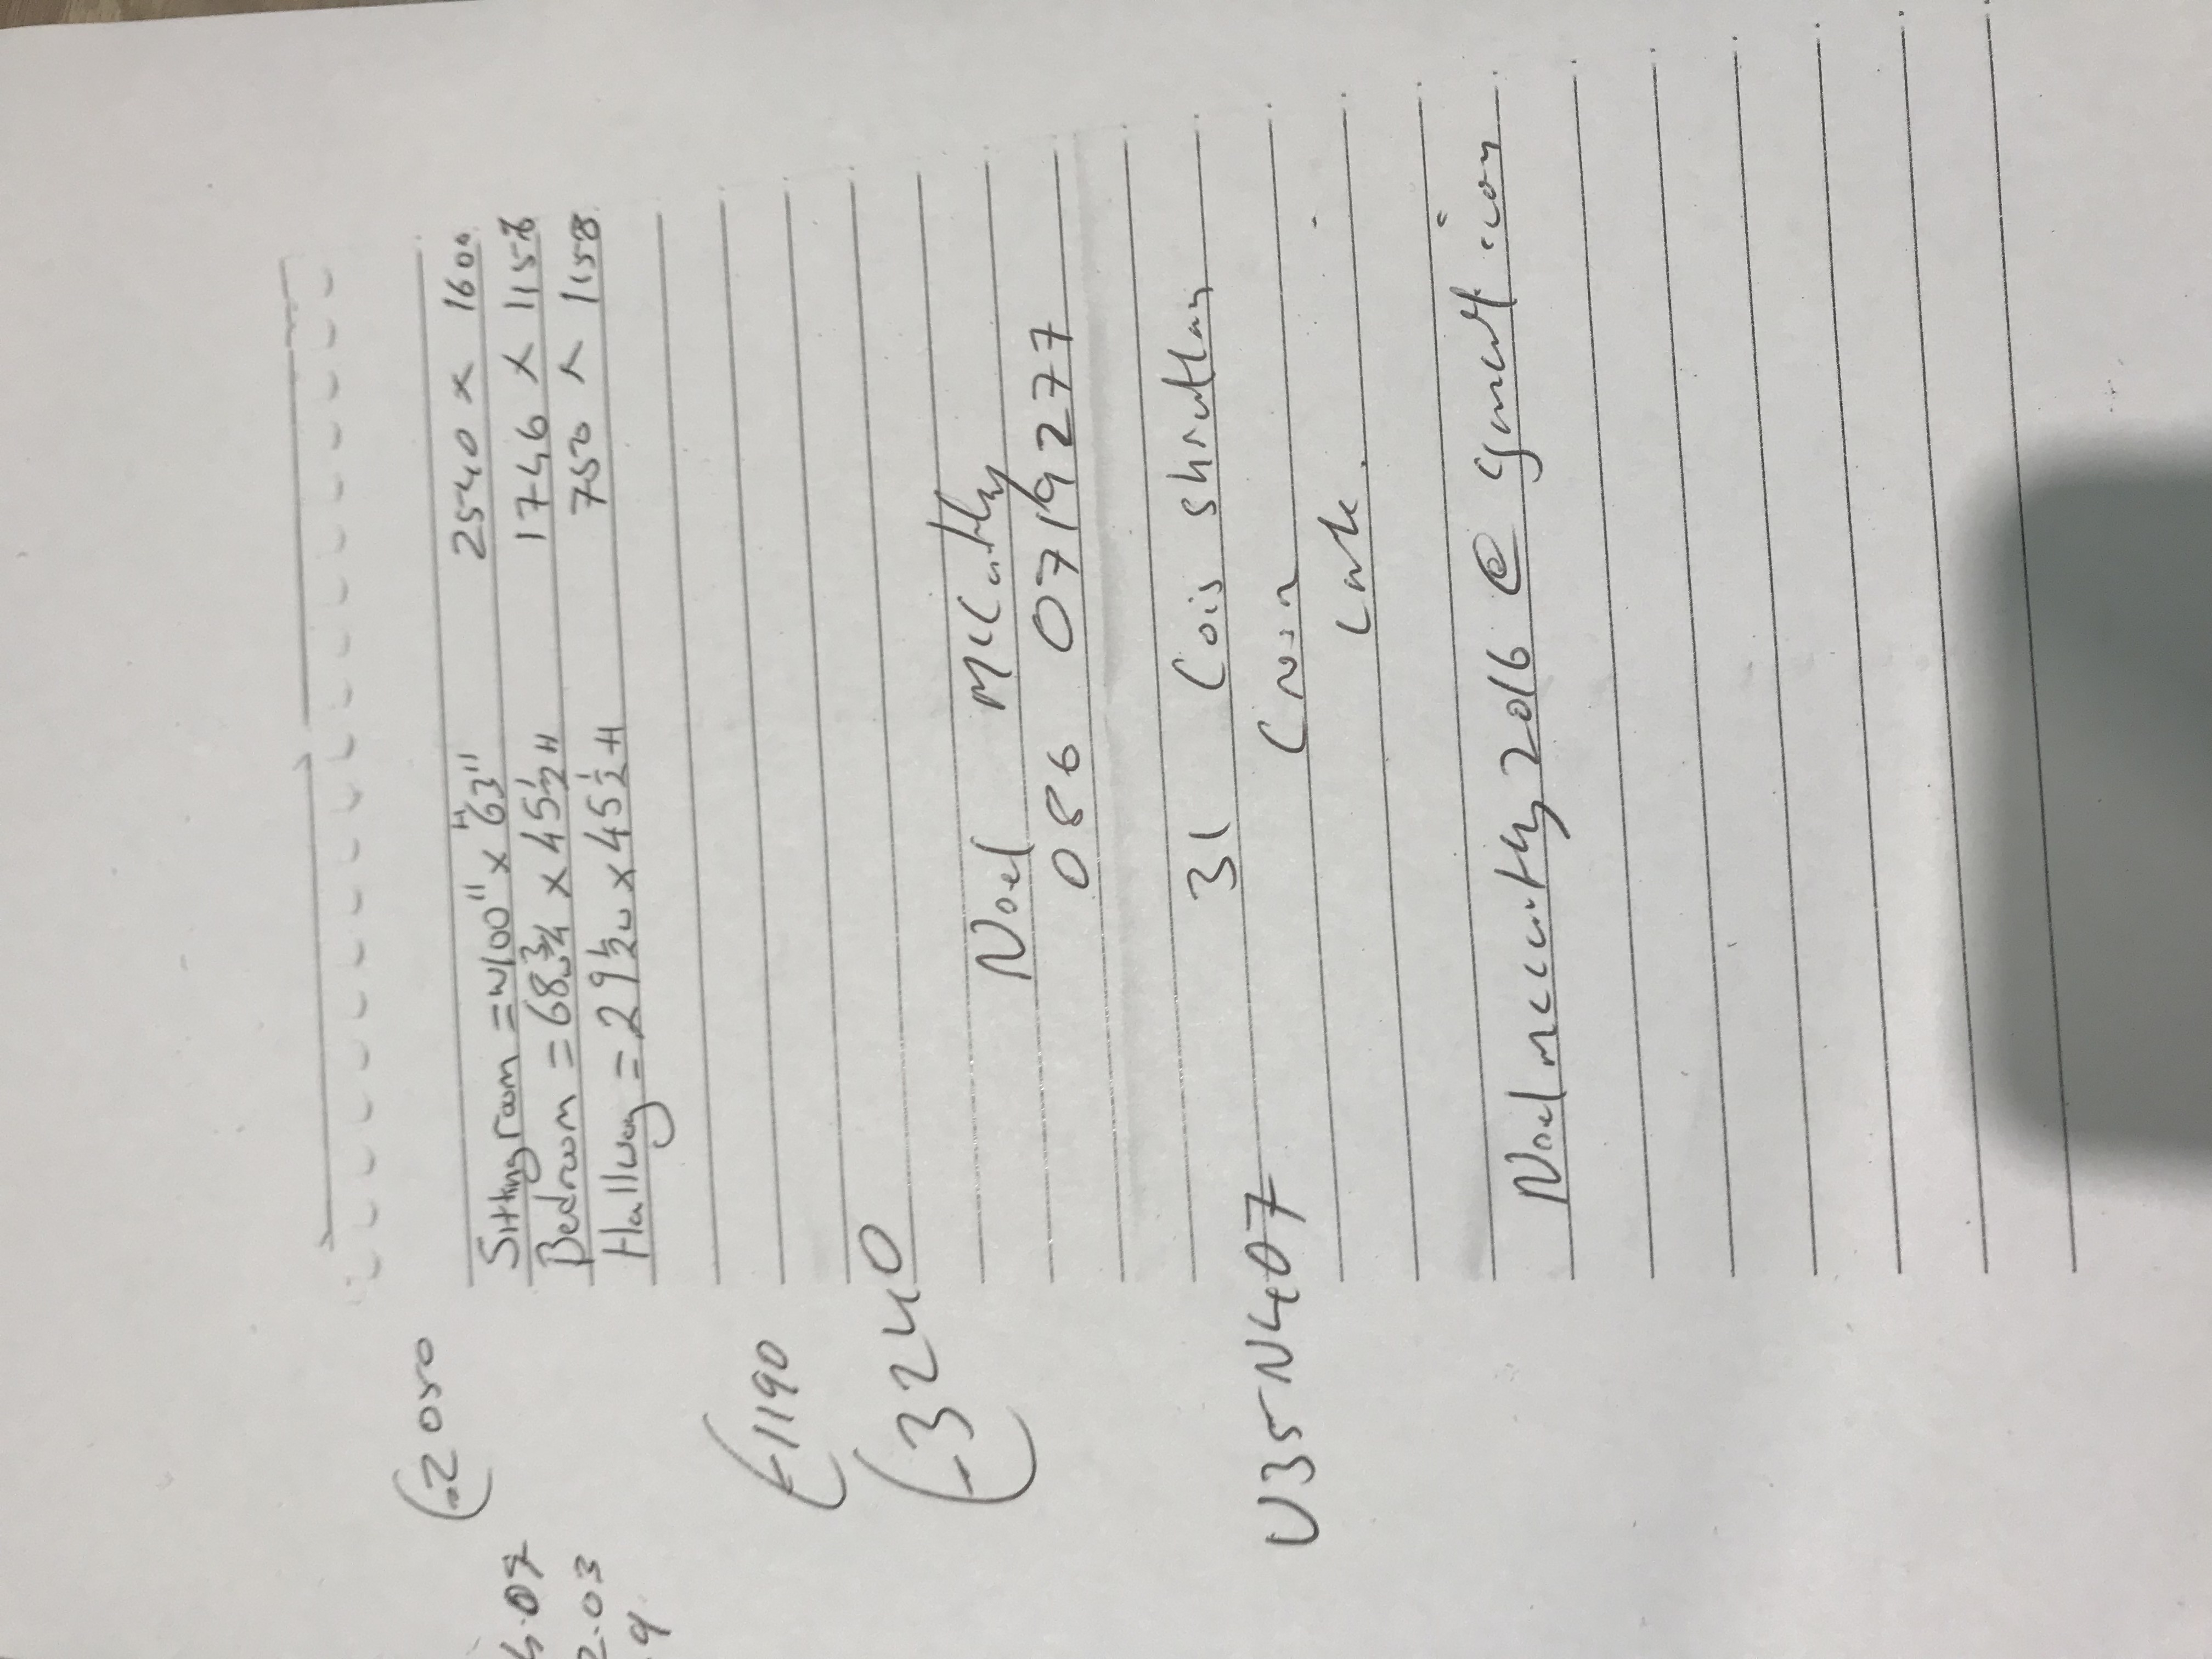 (-2050
Sittingroom = W100" x H63" 2540 x 1600
Bedroom = 68 3/4 W x 45 1/2 H 1746 x 1158
Hallway = 29 1/2 W x 45 1/2 H 750 x 1158
5.09
2.03
.9
(-1190
(-3240
Noel McCarthy
086 0719277
31 Cois Shruthan
U35N407
Noelmccarthy2016@gmail.com